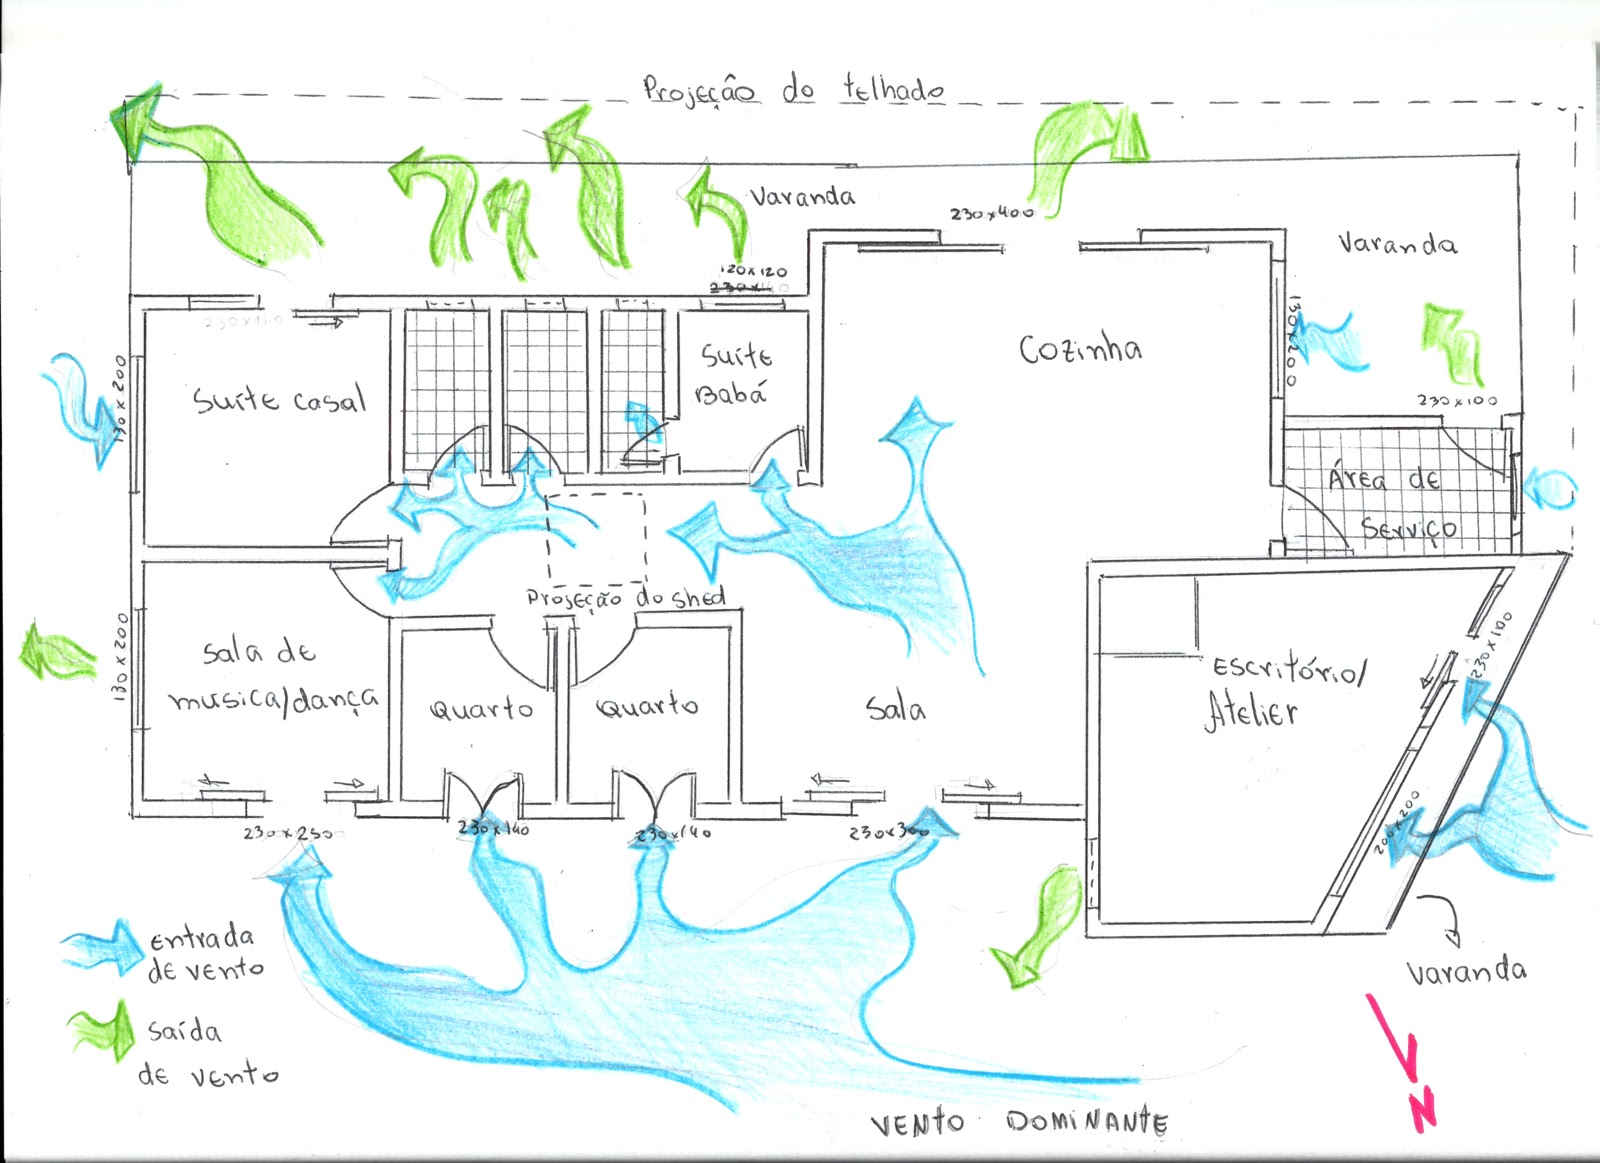 Projeção do telhado
Varanda
230x400
Varanda
120x120
130x200
Suíte
Babá
Cozinha
130x200
Suíte casal
230x100
Área de
Serviço
Projeção do shed
130x200
Sala de
musica/dança
Quarto
Quarto
Sala
Escritório/
Atelier
230x100
200x200
230x250
230x140
230x140
230x300
Entrada
de vento
Varanda
Saída
de vento
N
VENTO DOMINANTE